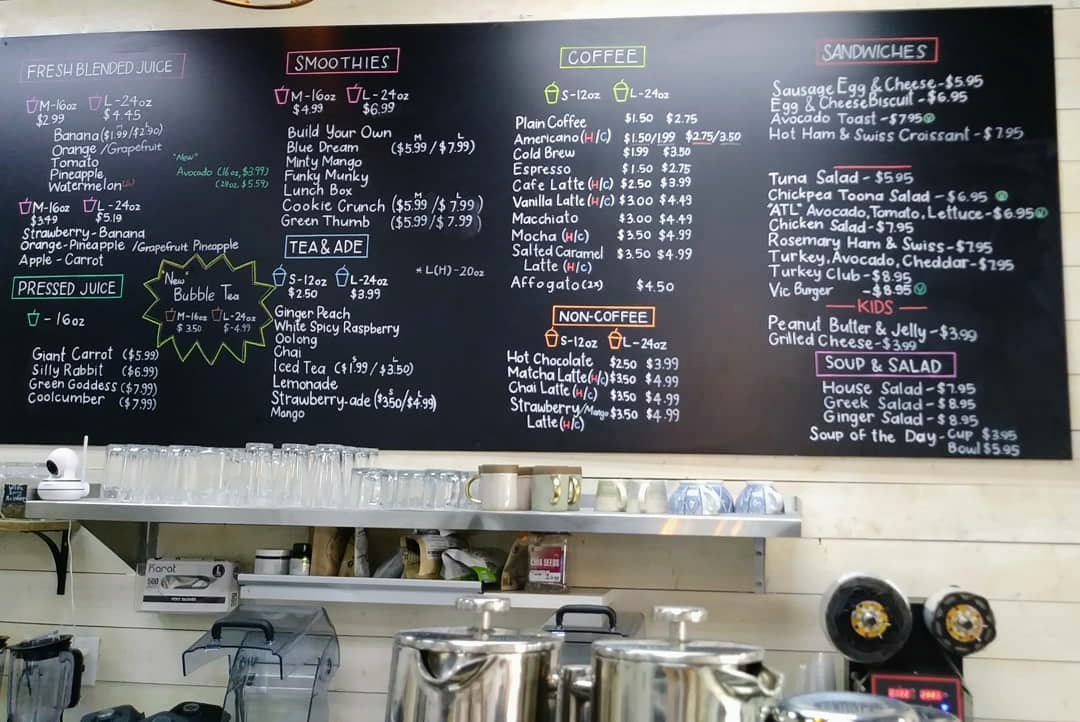 FRESH BLENDED JUICE
M-16oz L-24oz
$2.99 $4.45
Banana ($1.99/$2.90)
M L
Orange /Grapefruit
Tomato
Pineapple
Watermelon
"New"
Avocado (16oz, $3.99)
(24oz, $5.59)
M-16oz L-24oz
$3.49 $5.19
Strawberry-Banana
Orange-Pineapple /Grapefruit Pineapple
Apple-Carrot
PRESSED JUICE
- 16oz
Giant Carrot ($5.99)
Silly Rabbit ($6.99)
Green Goddess ($7.99)
Coolcumber ($7.99)
"New"
Bubble Tea
M-16oz L-24oz
$3.50 $-4.99
SMOOTHIES
M-16oz L-24oz
$4.99 $6.99
Build Your Own
M L
Blue Dream ($5.99 / $7.99)
Minty Mango
Funky Munky
Lunch Box
M L
Cookie Crunch ($5.99 / $7.99)
Green Thumb ($5.99 / $7.99)
TEA & ADE
S-12oz L-24oz
$2.50 $3.99
* L(H)-20oz
Ginger Peach
White Spicy Raspberry
Oolong
Chai
S L
Iced Tea ($1.99 / $3.50)
Lemonade
S L
Strawberry-ade ($3.50/$4.99)
Mango
COFFEE
S-12oz L-24oz
Plain Coffee $1.50 $2.75
Americano (H/C) $1.50/1.99 $2.75/3.50
Cold Brew $1.99 $3.50
Espresso $1.50 $2.75
Cafe Latte (H/C) $2.50 $3.99
Vanilla Latte (H/C) $3.00 $4.49
Macchiato $3.00 $4.49
Mocha (H/C) $3.50 $4.99
Salted Caramel $3.50 $4.99
Latte (H/C)
Affogato (2x) $4.50
NON-COFFEE
S-12oz L-24oz
Hot Chocolate $2.50 $3.99
Matcha Latte (H/C) $3.50 $4.99
Chai Latte (H/C) $3.50 $4.99
Strawberry/Mango $3.50 $4.99
Latte (H/C)
SANDWICHES
Sausage Egg & Cheese-$5.95
Egg & Cheese Biscuit -$6.95
Avocado Toast -$7.95 V
Hot Ham & Swiss Croissant -$7.95
Tuna Salad - $5.95
Chickpea Toona Salad - $6.95 V
"ATL" Avocado, Tomato, Lettuce-$6.95 V
Chicken Salad -$7.95
Rosemary Ham & Swiss-$7.95
Turkey, Avocado, Cheddar-$7.95
Turkey Club -$8.95
Vic Burger -$8.95 V
KIDS
Peanut Butter & Jelly -$3.99
Grilled Cheese -$3.99
SOUP & SALAD
House Salad - $7.95
Greek Salad - $8.95
Ginger Salad - $8.95
Soup of the Day - Cup $3.95
Bowl $5.95
Karat
500
L
CHIA SEEDS